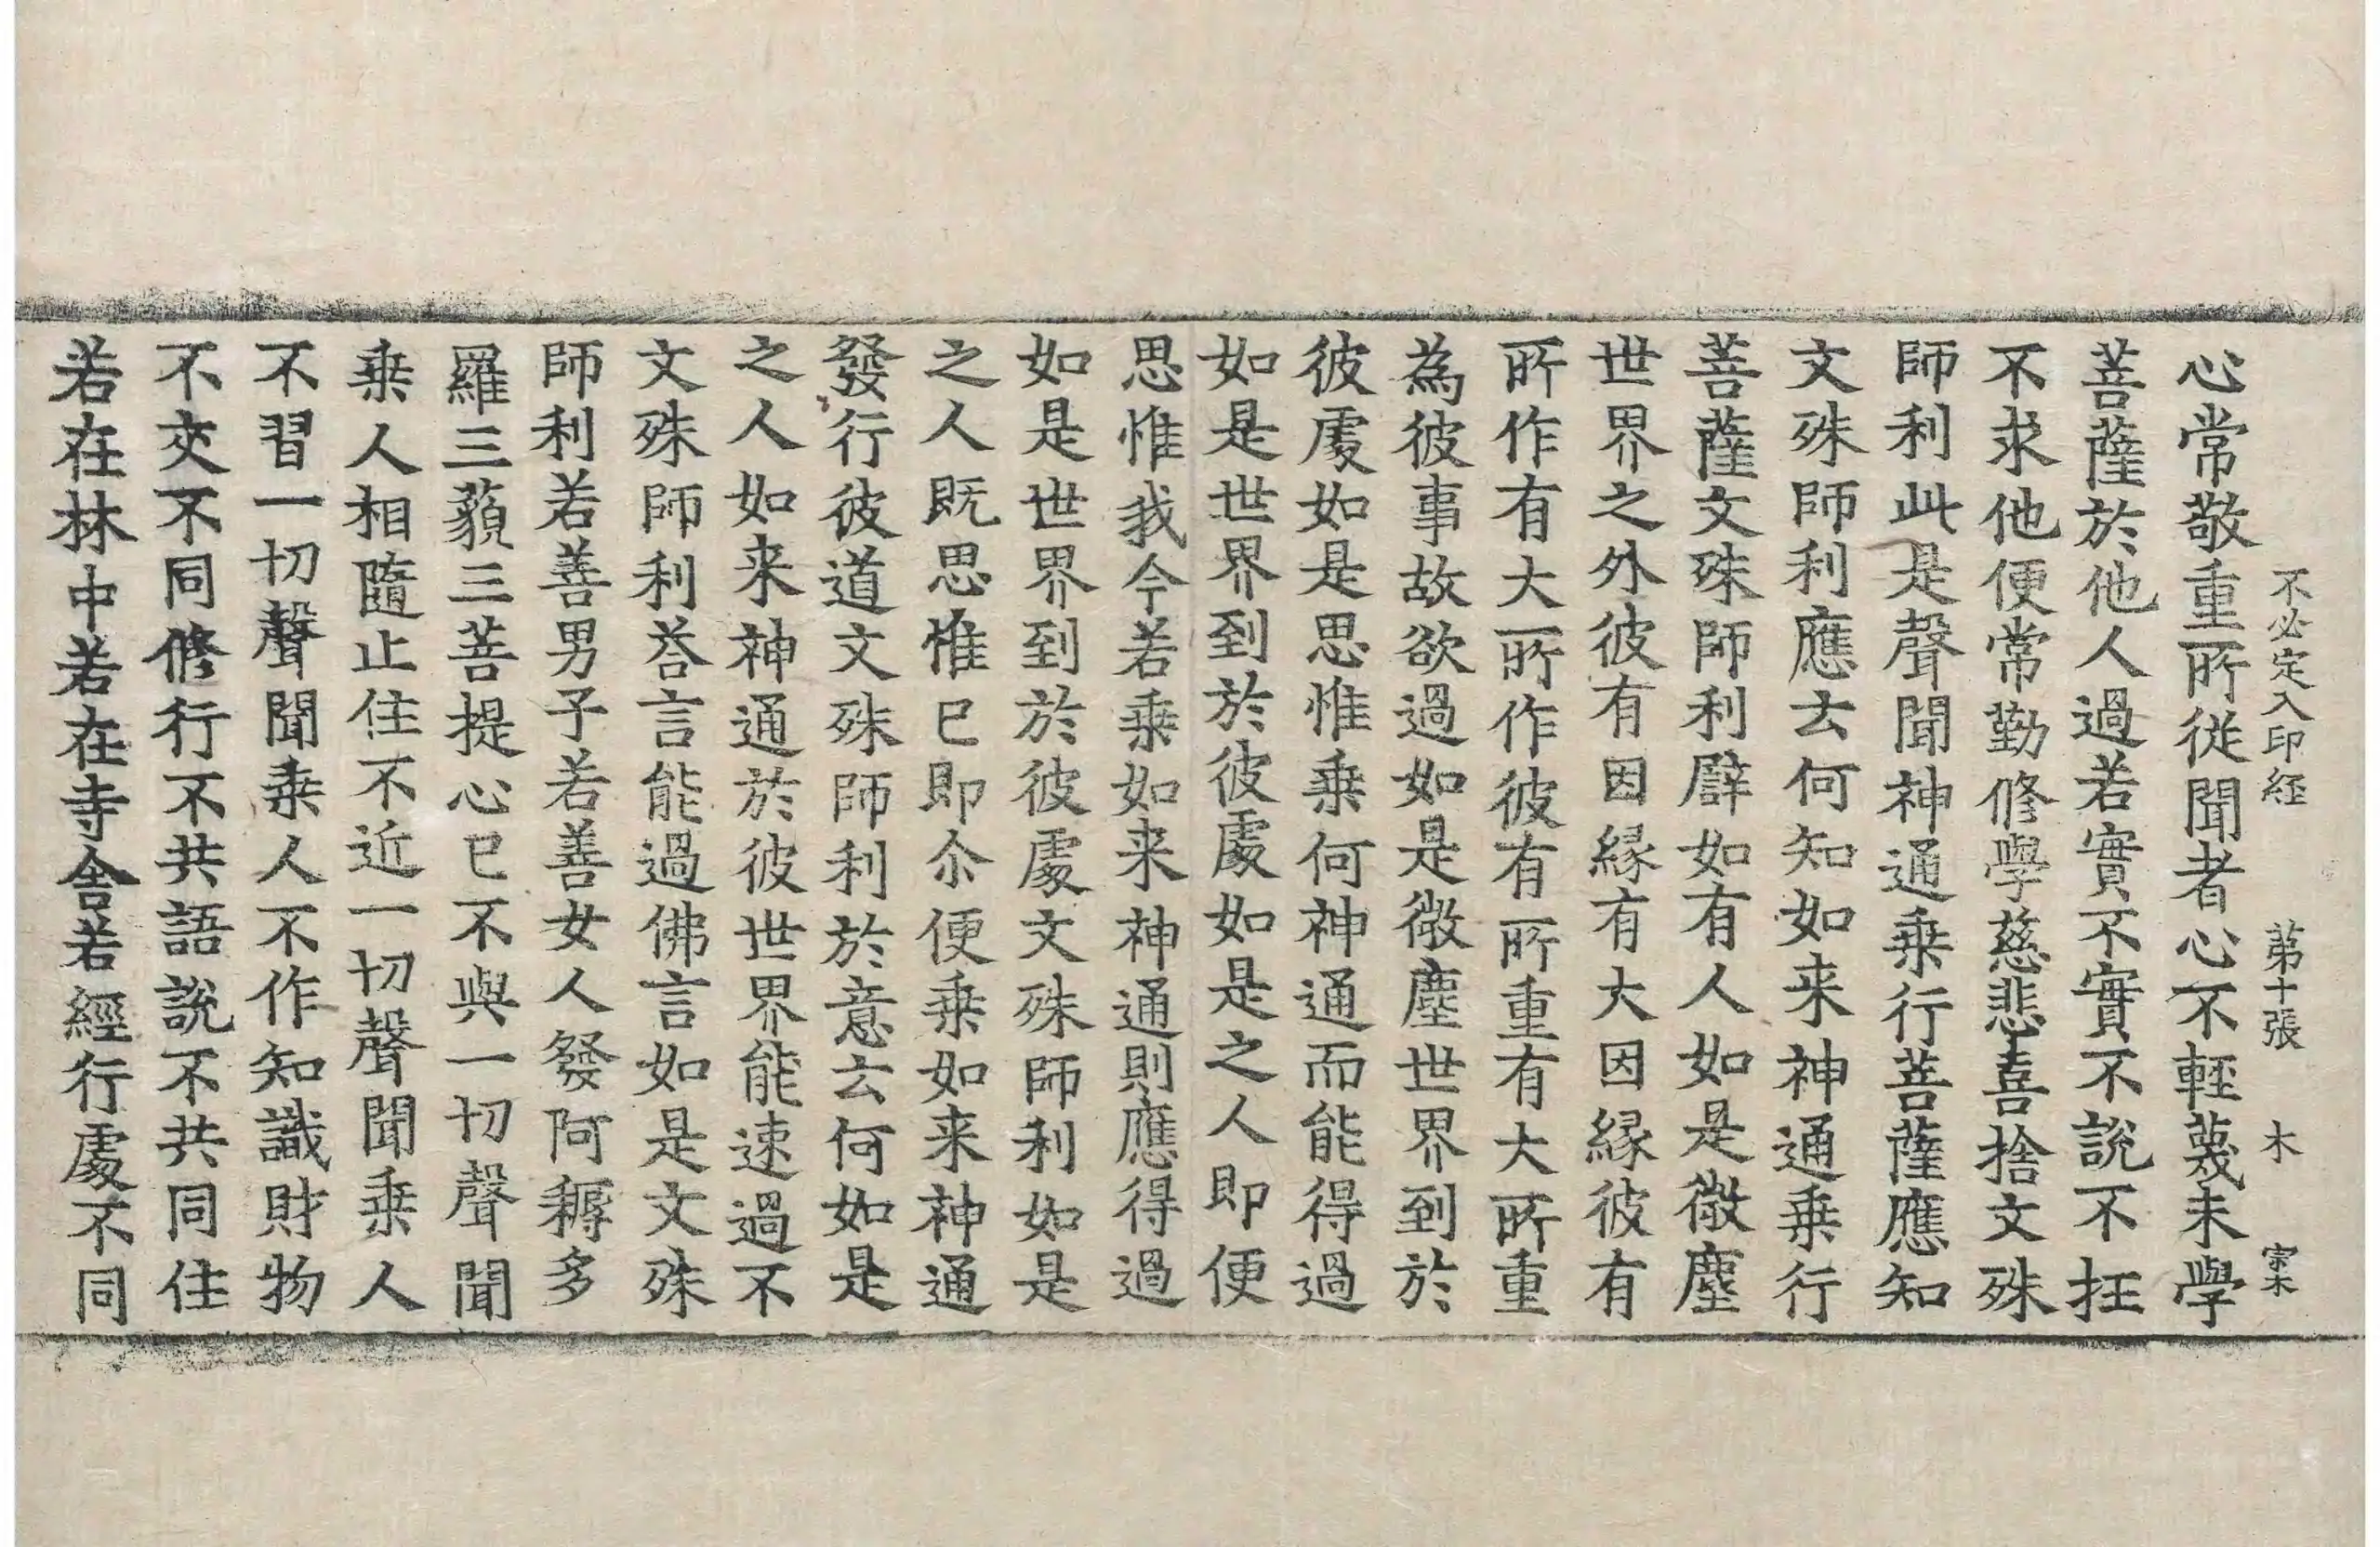 不必定入印経 第十張 木 宗木
心常敬重所從聞者心不輕蔑未學
菩薩於他人過若實不實不說不抂
不求他便常勤修學慈悲喜捨文殊
師利此是聲聞神通乗行菩薩應知
文殊師利應云何知如来神通乗行
菩薩文殊師利譬如有人如是微塵
世界之外彼有因縁有大因縁彼有
所作有大所作彼有所重有大所重
為彼事故欲過如是微塵世界到於
彼處如是思惟乗何神通而能得過
如是世界到於彼處如是之人即便
思惟我今若乗如来神通則應得過
如是世界到於彼處文殊師利如是
之人既思惟已即尒便乗如来神通
發行彼道文殊師利於意云何如是
之人如来神通於彼世界能速過不
文殊師利荅言能過佛言如是文殊
師利若善男子若善女人發阿耨多
羅三藐三菩提心已不與一切聲聞
乗人相隨止住不近一切聲聞乗人
不習一切聲聞乗人不作知識財物
不交不同修行不共語說不共同住
若在林中若在寺舍若經行處不同